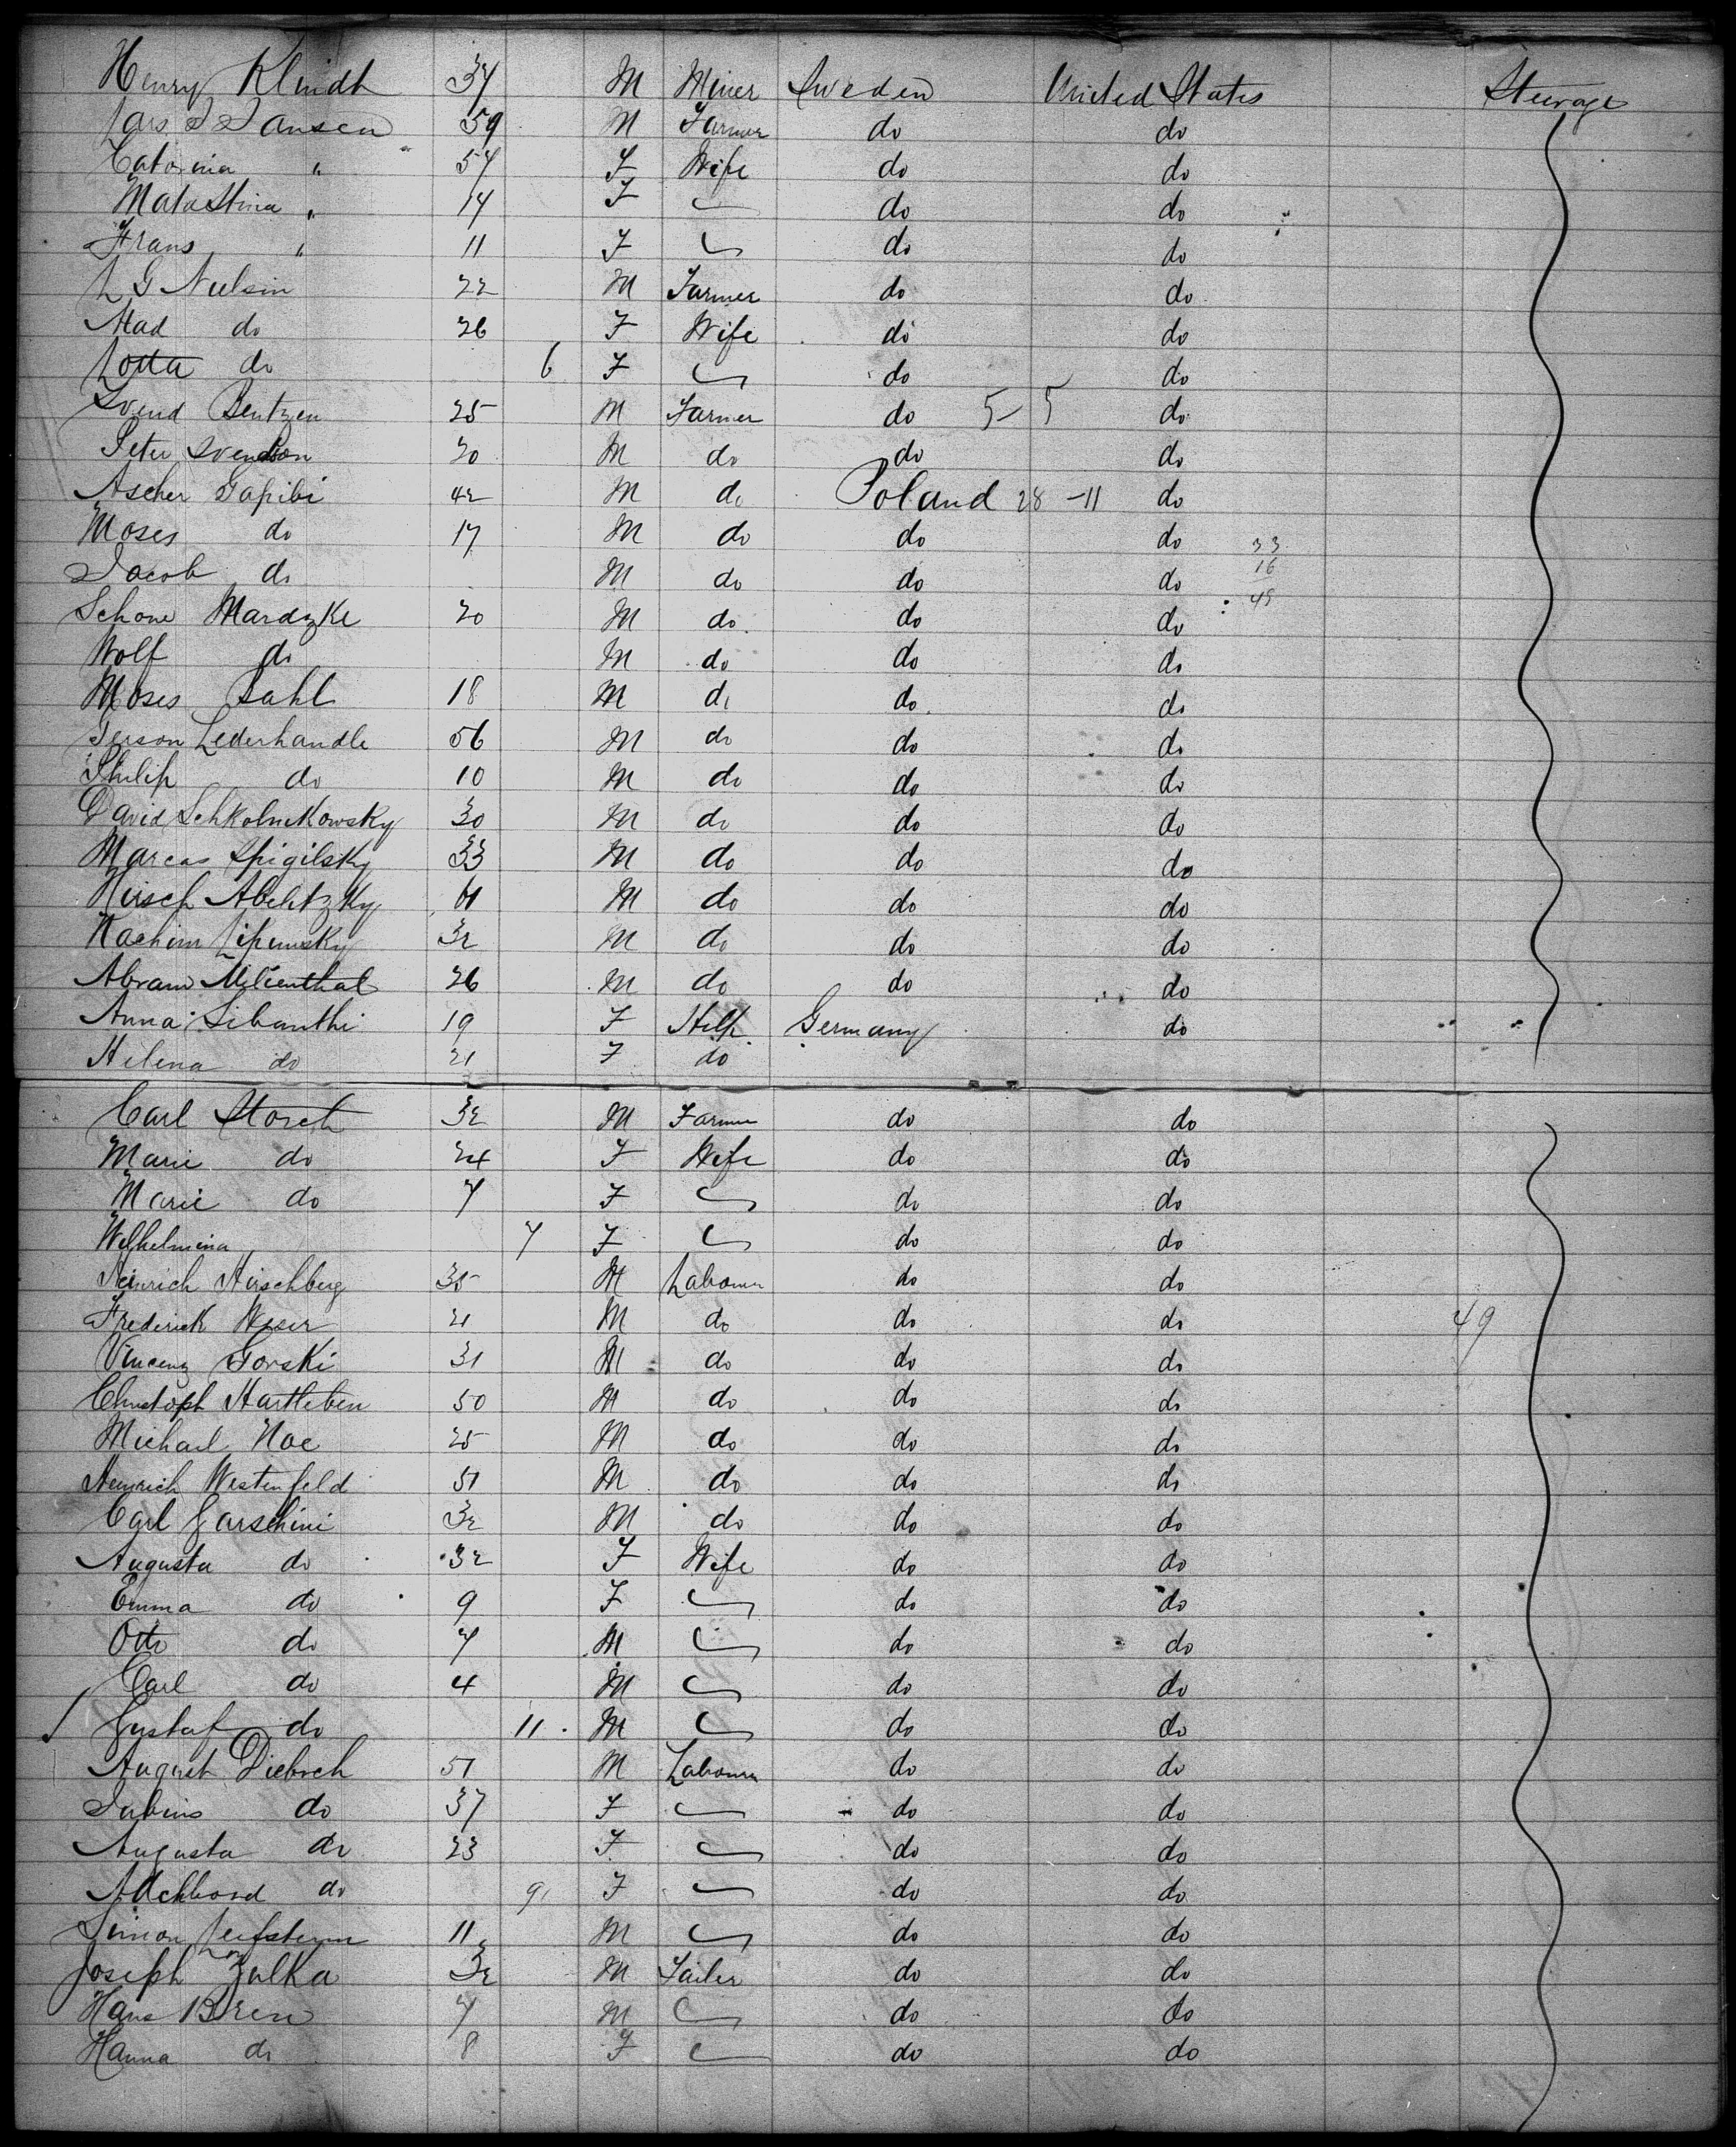 Henry Klindt 37 M Miner Sweden United States Steerage
Lars J Jansen 59 M Farmer do do
Catorina " 54 F Wife do do
Mata Stina " 14 F do do
Frans " 11 F do do
L G Nielsin 22 M Farmer do do
Mad do 26 F Wife do do
Lotta do 6 F do do
Svend Bentzen 25 M Farmer do 5 5 do
Peter Svendson 20 M do do do
Ascher Gapibi 42 M do Poland 28 - 11 do
Moses do 17 M do do do 33
Jacob do M do do do 16
49
Schone Mardzke 20 M do do do
Wolf do M do do do
Moses Bahl 18 M do do do
Gerson Lederhandle 56 M do do do
Philip do 10 M do do do
David Schkolnikowsky 30 M do do do
Marcas Spigilsky 33 M do do do
Hirsch Abelitzky M do do do
Nachim Lipunsky 32 M do do do
Abram Milienthal 26 M do do do
Anna Libanthi 19 F Help Germany do
Helena do 21 F do
Carl Storch 32 M Farmer do do
Marie do 24 F Wife do do
Marie do 7 F do do
Wilhelmina 7 F do do
Heinrich Hirschberg 35 M Labourer do do
Frederick Weser 21 M do do do 49
Vincenz Gorski 31 M do do do
Christoph Hartleben 50 M do do do
Michael Noe 25 M do do do
Heinrich Westenfeld 51 M do do do
Carl Garschini 32 M do do do
Augusta do 32 F Wife do do
Emma do 9 F do do
Otto do 7 M do do
Carl do 4 M do do
Gustaf do 11 M do do
August Diebsch 51 M Labourer do do
Sabins do 37 F do do
Augusta do 23 F do do
do 9 F do do
Simon 11 M do do
Joseph Zulka 32 M Tailer do do
Hans Bren 7 M do do
Hanna do 8 F do do